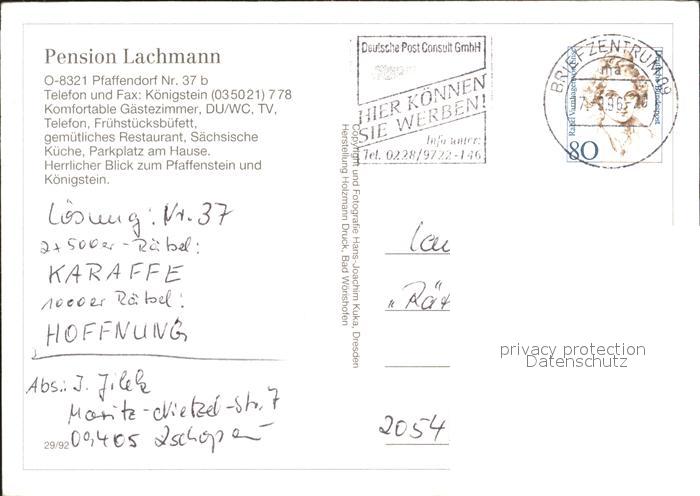 Pension Lachmann
O-8321 Pfaffendorf Nr. 37 b
Telefon und Fax: Königstein (03 50 21) 7 78
Komfortable Gästezimmer, DU/WC, TV,
Telefon, Frühstücksbüfett,
gemütliches Restaurant, Sächsische
Küche, Parkplatz am Hause.
Herrlicher Blick zum Pfaffenstein und
Königstein.
Lösung: Nr. 37
2x500er-Rätsel:
KARAFFE
1000er Rätsel:
HOFFNUNG
Abs.: J. Jilek
Moritz-Nietzel-Str. 7
09405 Zschopau
29/92
Copyright und Fotografie Hans-Joachim Kuka, Dresden
Herstellung Holzmann Druck, Bad Wörishofen
Deutsche Post Consult GmbH
HIER KÖNNEN
SIE WERBEN!
Info unter:
Tel. 0228/9722-146
BRIEFZENTRUM 09
ma
Rahel Varnhagen
Deutsche Bundespost
80
"Rät
2054
privacy protection
Datenschutz